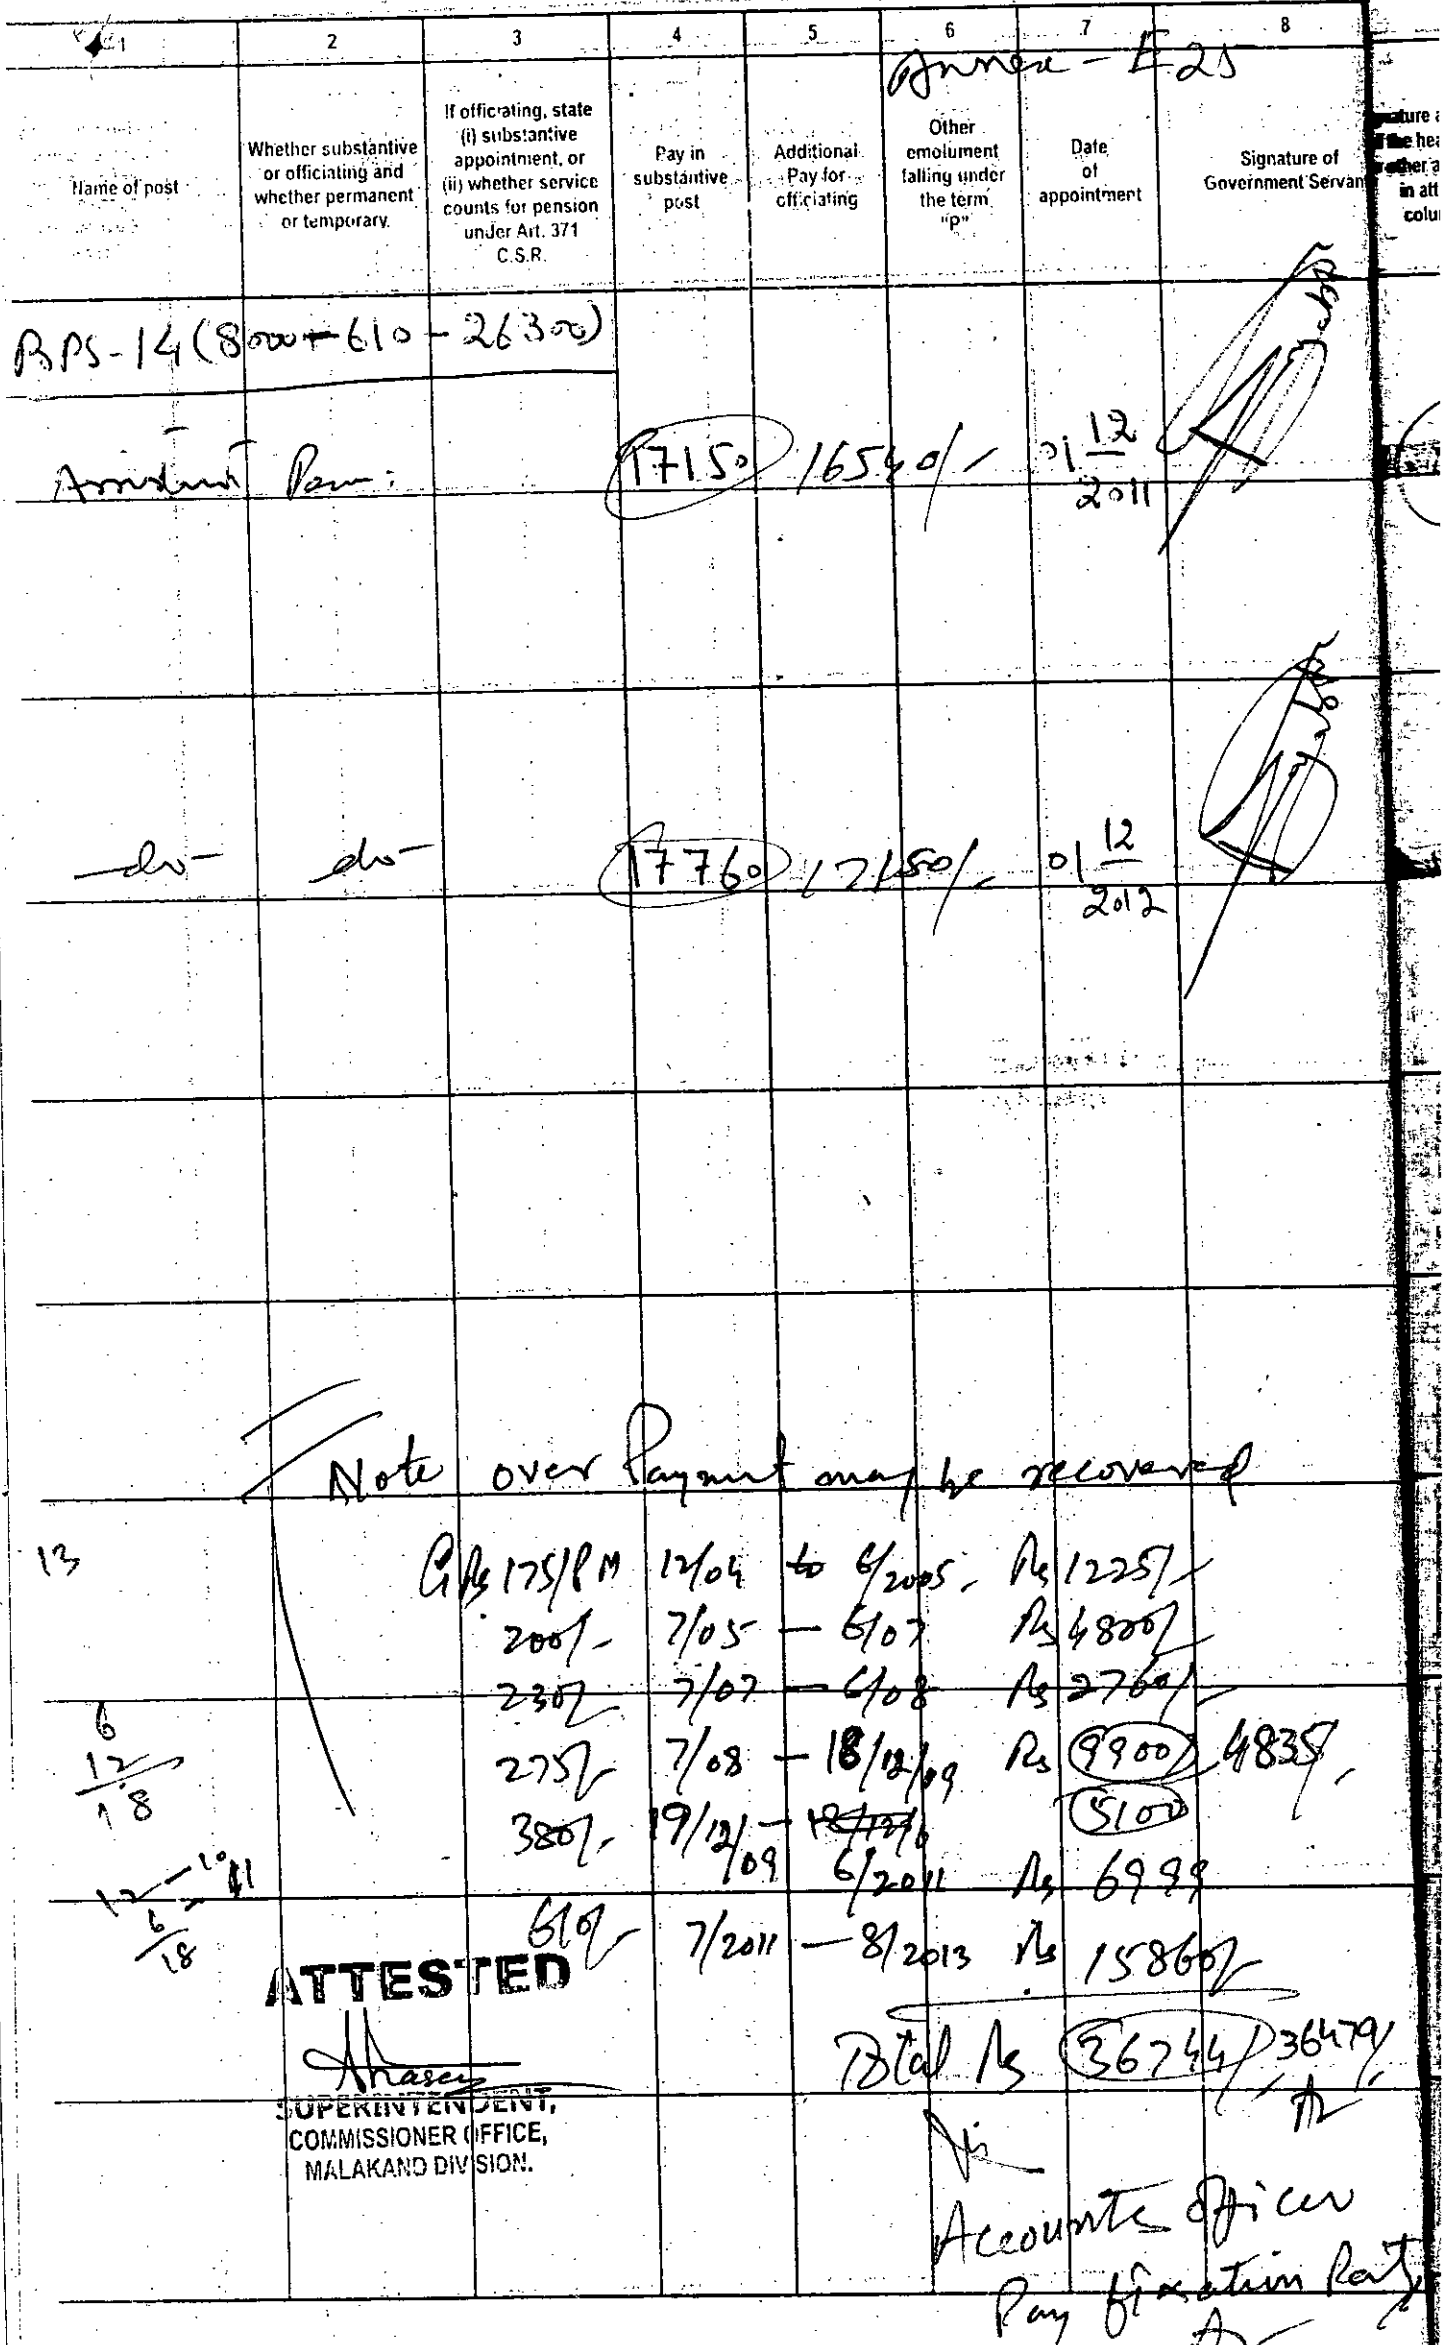 1 2 3 4 5 6 7 8
Annex - E 25
Name of post
Whether substantive or officiating and whether permanent or temporary.
If officiating, state (i) substantive appointment, or (ii) whether service counts for pension under Art. 371 C.S.R.
Pay in substantive post
Additional Pay for officiating
Other emolument falling under the term "P"
Date of appointment
Signature of Government Servan
ature a
the hea
other a
in att
colu
BPS-14 (8000-610-26300)
Assistant 17150 16540/- 01 12 2011
-do- -do- 17760 17150/- 01 12 2012
Note over Payment may be recovered
13
@ Rs 175/PM 12/04 to 6/2005. Rs 1225/-
200/- 7/05 - 6/07 Rs 4800/-
230/- 7/07 - 6/08 Rs 2760/-
6
12
18
275/- 7/08 - 18/12/09 Rs 9900/ 4835/-
5100
380/- 19/12/09 - 6/2011 Rs 6999
6
18
610/- 7/2011 - 8/2013 Rs 15860/-
ATTESTED
Total Rs 36744/- 36479/-
SUPERINTENDENT,
COMMISSIONER OFFICE,
MALAKAND DIVISION.
Accounts Officer
Pay fixation Party